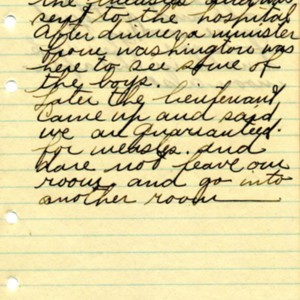 the measles and was
sent to the hospital
After dinner a minister
from Washington was
here to see some of
the boys.
Later the lieutenant
came up and said
we are guaranteed
for measles. and
dare not leave our
room and go into
another room